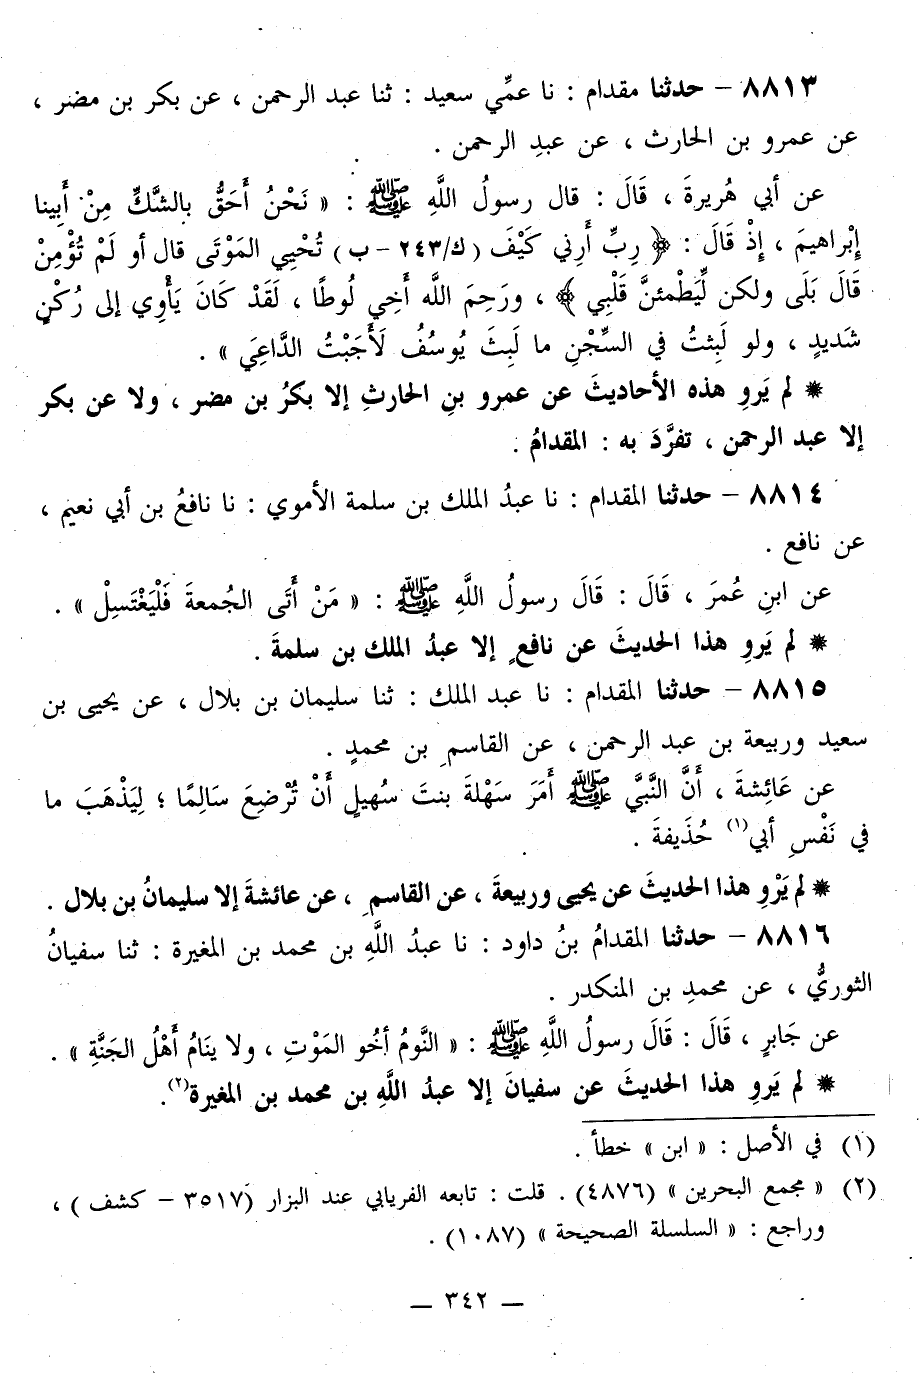 ٨٨١٣ - حدثنا مقدام : نا عمِّي سعيد : ثنا عبد الرحمن ، عن بكر بن مضر ،
عن عمرو بن الحارث ، عن عبدِ الرحمن .
عن أبي هُريرةَ ، قَالَ : قال رسولُ اللَّهِ ﷺ : « نَحْنُ أَحَقُّ بالشَّكِّ مِنْ أَبِينا
إِبْراهيمَ ، إِذْ قَالَ : ﴿ رِبِّ أَرِني كَيْفَ (ك/٢٤٣ - ب) تُحْيِي المَوْتَى قال أو لَمْ تُؤْمِنْ
قَالَ بَلَى ولكن لِّيَطْمئنَّ قَلْبِي ﴾ ، ورَحِمَ اللَّه أخِي لُوطًا ، لَقَدْ كَانَ يَأْوِي إلى رُكْنٍ
شَديدٍ ، ولو لَبِثتُ في السِّجْنِ ما لَبِثَ يُوسُفُ لَأَجَبْتُ الدَّاعِيَ » .
* لم يَروِ هذه الأحاديثَ عن عمرو بنِ الحارثِ إلا بكرُ بن مضر ، ولا عن بكر
إلا عبد الرحمن ، تفرَّدَ به : المقدامُ .
٨٨١٤ - حدثنا المقدام : نا عبدُ الملك بن سلمة الأموي : نا نافعُ بن أبي نعيم ،
عن نافع .
عن ابنِ عُمرَ ، قَالَ : قَالَ رسولُ اللَّهِ ﷺ : « مَنْ أَتَى الجُمعةَ فَلْيَغْتَسِلْ » .
* لم يَروِ هذا الحديثَ عن نافعٍ إلا عبدُ الملك بن سلمةَ .
٨٨١٥ - حدثنا المقدام : نا عبد الملك : ثنا سليمان بن بلال ، عن يحيى بن
سعيد وربيعة بن عبد الرحمن ، عن القاسمِ بن محمدٍ .
عن عَائِشةَ ، أَنَّ النَّبيَّ ﷺ أَمَرَ سَهْلةَ بنتَ سُهيلٍ أَنْ تُرْضِعَ سَالِمًا ؛ لِيَذْهَبَ ما
في نَفْسِ أبي(١) حُذَيفةَ .
* لم يَرْوِ هذا الحديثَ عن يحيى وربيعةَ ، عن القاسمِ ، عن عائشةَ إلا سليمانُ بن بلال .
٨٨١٦ - حدثنا المقدامُ بنُ داود : نا عبدُ اللَّهِ بن محمد بن المغيرة : ثنا سفيانُ
الثوريُّ ، عن محمدِ بن المنكدر .
عن جَابرٍ ، قَالَ : قَالَ رسولُ اللَّهِ ﷺ : « النَّومُ أخُو المَوْتِ ، ولا ينَامُ أَهْلُ الجَنَّةِ » .
* لم يَروِ هذا الحديثَ عن سفيانَ إلا عبدُ اللَّهِ بن محمد بن المغيرة(٢).
(١) في الأصل : « ابن » خطأ .
(٢) « مجمع البحرين » (٤٨٧٦) . قلت : تابعه الفريابي عند البزار (٣٥١٧ - كشف ) ،
وراجع : « السلسلة الصحيحة » (١٠٨٧) .
— ٣٤٢ —